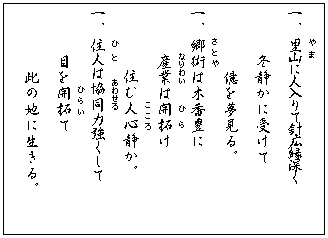 やま
一、里山に人入りて針広緑深く
冬静かに受けて
億を夢見る。
さとや
一、郷街は木香豊に
なりわい ひら
産業は開拓け
こころ
住む人心静か。
ひと あわせる
一、住人は協同力強くして
ひらい
目を開拓て
此の地に生きる。